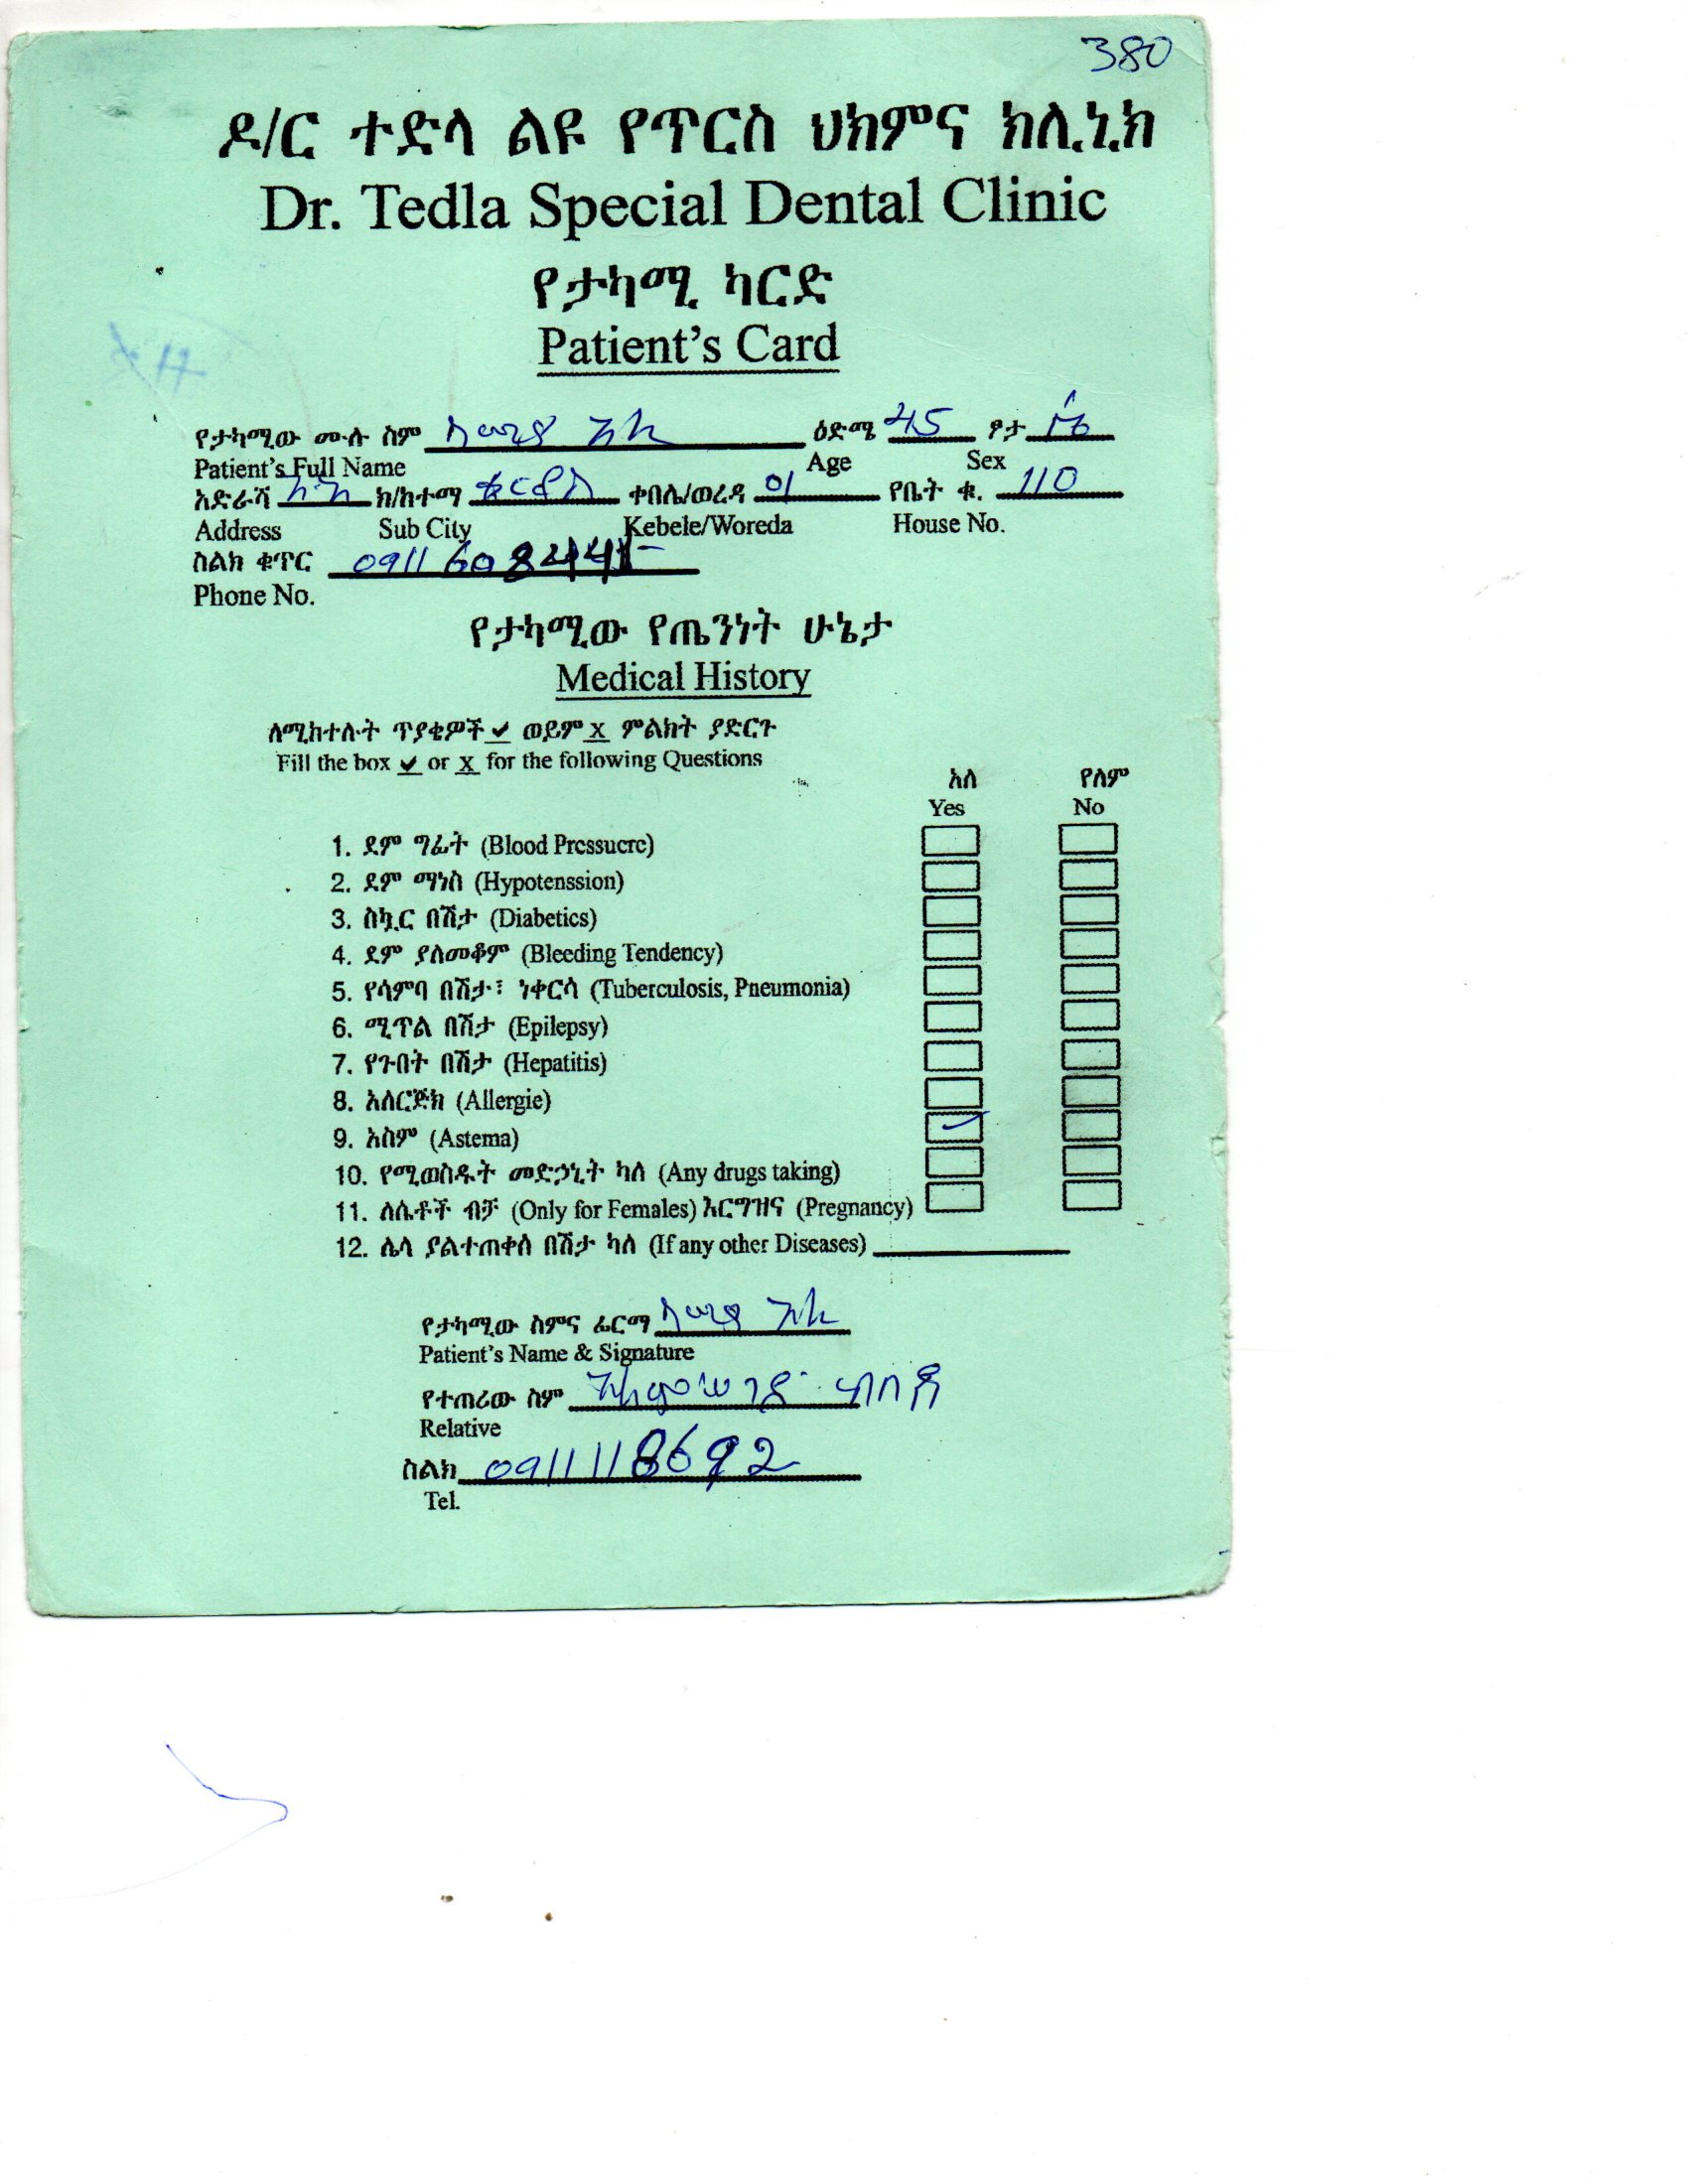 380
ዶ/ር ተድላ ልዩ የጥርስ ህክምና ክሊኒክ
Dr. Tedla Special Dental Clinic
የታካሚ ካርድ
Patient's Card
የታካሚው ሙሉ ስም ዕድሜ 45 ፆታ
Patient's Full Name Age Sex
አድራሻ ክ/ከተማ ቀበሌ/ወረዳ 01 የቤት ቁ. 110
Address Sub City Kebele/Woreda House No.
ስልክ ቁጥር
Phone No.
የታካሚው የጤንነት ሁኔታ
Medical History
ለሚከተሉት ጥያቄዎች ✓ ወይም X ምልክት ያድርጉ
Fill the box ✓ or X for the following Questions
አለ የለም
Yes No
1. ደም ግፊት (Blood Pressucre)
2. ደም ማነስ (Hypotenssion)
3. ስኳር በሽታ (Diabetics)
4. ደም ያለመቆም (Bleeding Tendency)
5. የሳምባ በሽታ፣ ነቀርሳ (Tuberculosis, Pneumonia)
6. ሚጥል በሽታ (Epilepsy)
7. የጉበት በሽታ (Hepatitis)
8. አለርጅክ (Allergie)
9. አስም (Astema) ✓
10. የሚወስዱት መድኃኒት ካለ (Any drugs taking)
11. ለሴቶች ብቻ (Only for Females) እርግዝና (Pregnancy)
12. ሌላ ያልተጠቀሰ በሽታ ካለ (If any other Diseases)
የታካሚው ስምና ፊርማ
Patient's Name & Signature
የተጠሪው ስም
Relative
ስልክ 0911118692
Tel.